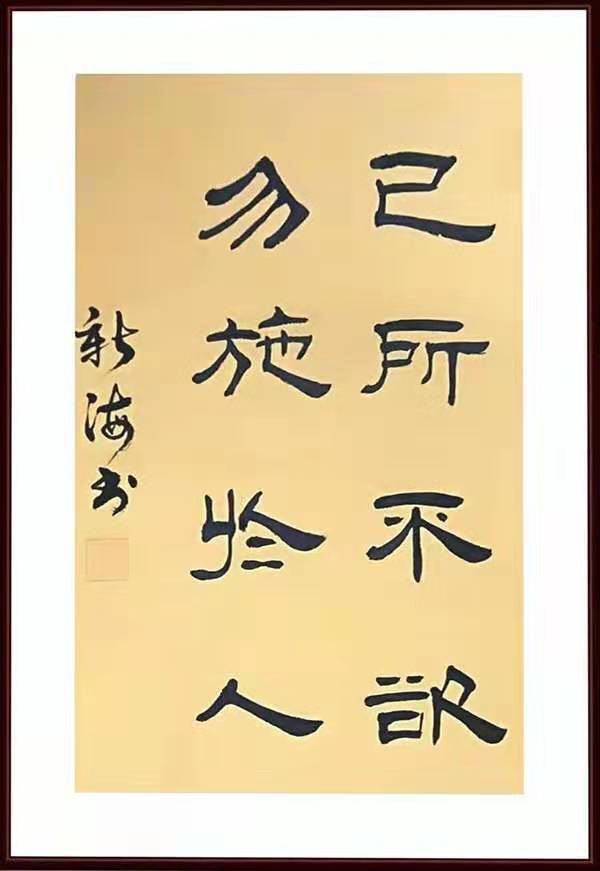 己所不欲
勿施於人
新海书